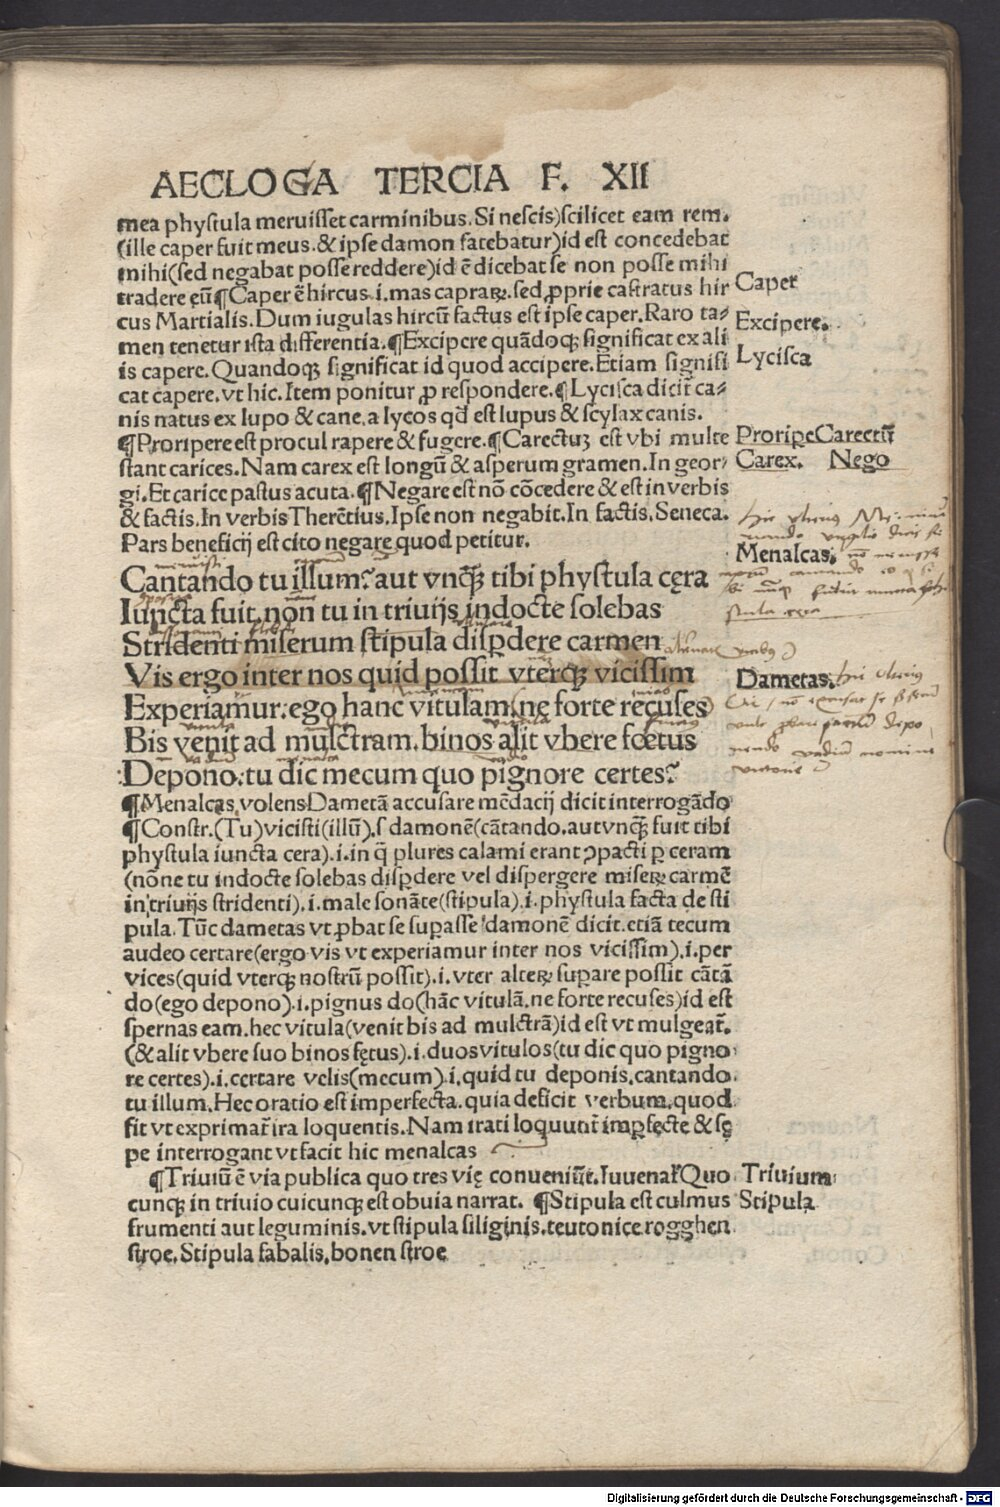 AECLOGA TERCIA F. XII
mea phystula meruisset carminibus. Si nescis)scilicet eam rem.
(ille caper fuit meus. & ipse damon fatebatur)id est concedebat
mihi(sed negabat posse reddere)id ē dicebat se non posse mihi
tradere eū¶Caper ē hircus .i. mas capraꝝ. sed ꝓprie castratus hir
Caper
cus Martialis. Dum iugulas hircū factus est ipse caper. Raro ta⸗
men tenetur ista differentia. ¶Excipere quādoqꝫ significat ex ali
Excipere.
is capere. Quandoqꝫ significat id quod accipere. Etiam signifi
Lycisca
cat capere. vt hic. Item ponitur ꝓ respondere. ¶Lycisca dicit̄ ca⸗
nis natus ex lupo & cane. a lycos qd̄ est lupus & scylax canis.
¶Proripere est procul rapere & fugere. ¶Carectuꝫ est vbi multe
Proripe Carectū
stant carices. Nam carex est longū & asperum gramen. In geor⸗
Carex. Nego
gi. Et carice pastus acuta. ¶Negare est nō cōcedere & est in verbis
& factis. In verbis Therētius. Ipse non negabit. In factis. Seneca.
Pars beneficij est cito negare quod petitur.
Menalcas.
Cantando tu illum? aut vnqꝫ̄ tibi phystula cęra
Iuncta fuit. non tu in triuijs indocte solebas
Stridenti miserum stipula disꝑdere carmen
Vis ergo inter nos quid possit vterqꝫ vicissim
Dametas.
Experiamur. ego hanc vitulam(ne forte recuses)
Bis venit ad mulctram. binos alit vbere fœtus
Depono: tu dic mecum quo pignore certes?
¶Menalcas volens Dametā accusare mēdacij dicit interrogādo
¶Constr. (Tu)vicisti(illū). s damonē(cātando. aut vnqꝫ̄ fuit tibi
phystula iuncta cera). i. in q̄ plures calami erant ꝯpacti ꝑ ceram
(nōne tu indocte solebas disꝑdere vel dispergere miseꝝ carmē
in triuijs stridenti). i. male sonāte(stipula). i. phystula facta de sti
pula. Tūc dametas vt ꝓbat se suꝑasse damonē dicit. etiā tecum
audeo certare(ergo vis vt experiamur inter nos vicissim). i. per
vices(quid vterqꝫ nostrū possit). i. vter alteꝝ suꝑare possit cātā
do(ego depono). i. pignus do(hāc vitulā. ne forte recuses)id est
spernas eam. hec vitula(venit bis ad mulctrā)id est vt mulgeat̄.
(& alit vbere suo binos fętus). i. duos vitulos(tu dic quo pigno
re certes). i. certare velis(mecum). i. quid tu deponis. cantando.
tu illum. Hec oratio est imperfecta. quia deficit verbum. quod
fit vt exprimat̄ ira loquentis. Nam irati loquunt̄ imꝑfecte & sę
pe interrogant vt facit hic menalcas
¶Triuiū ē via publica quo tres vię conueniūt. Iuuenal̄ Quo
Triuium
cunqꝫ in triuio cuicunqꝫ est obuia narrat. ¶Stipula est culmus
Stipula
frumenti aut leguminis. vt stipula siliginis. teutonice rogghen
stroe. Stipula fabalis. bonen stroe
Digitalisierung gefördert durch die Deutsche Forschungsgemeinschaft - DFG